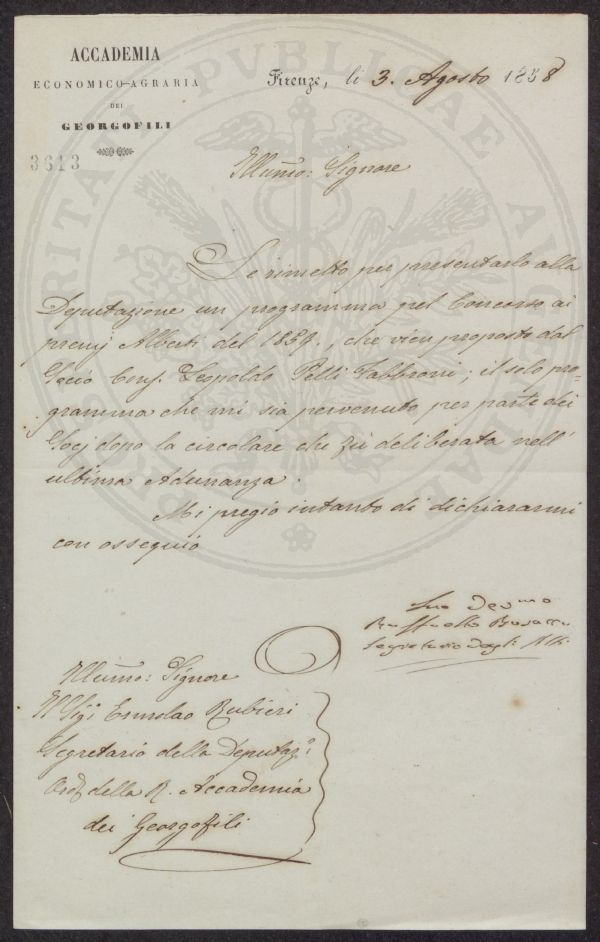 ACCADEMIA
ECONOMICO-AGRARIA
DEI
GEORGOFILI
3613
Firenze, li 3. Agosto 1858
Illumo: Signore
Le rimetto per presentarlo alla
Deputazione un programma pel Concorso ai
premj Alberti del 1859., che vien proposto dal
Socio Conf. Leopoldo Pelli Fabbroni; il solo pro-
gramma che mi sia pervenuto per parte dei
Socj dopo la circolare che fu deliberata nell'
ultima Adunanza.
Mi pregio intanto di dichiararmi
con ossequio
Suo Devmo
Raffaello Busacca
Segretario degli Atti
Illumo: Signore
Il Sigr Ermolao Rubieri
Segretario della Deputaz:
Ord. della R. Accademia
dei Georgofili
PROSPERITATI PUBLICAE AUGENDAE